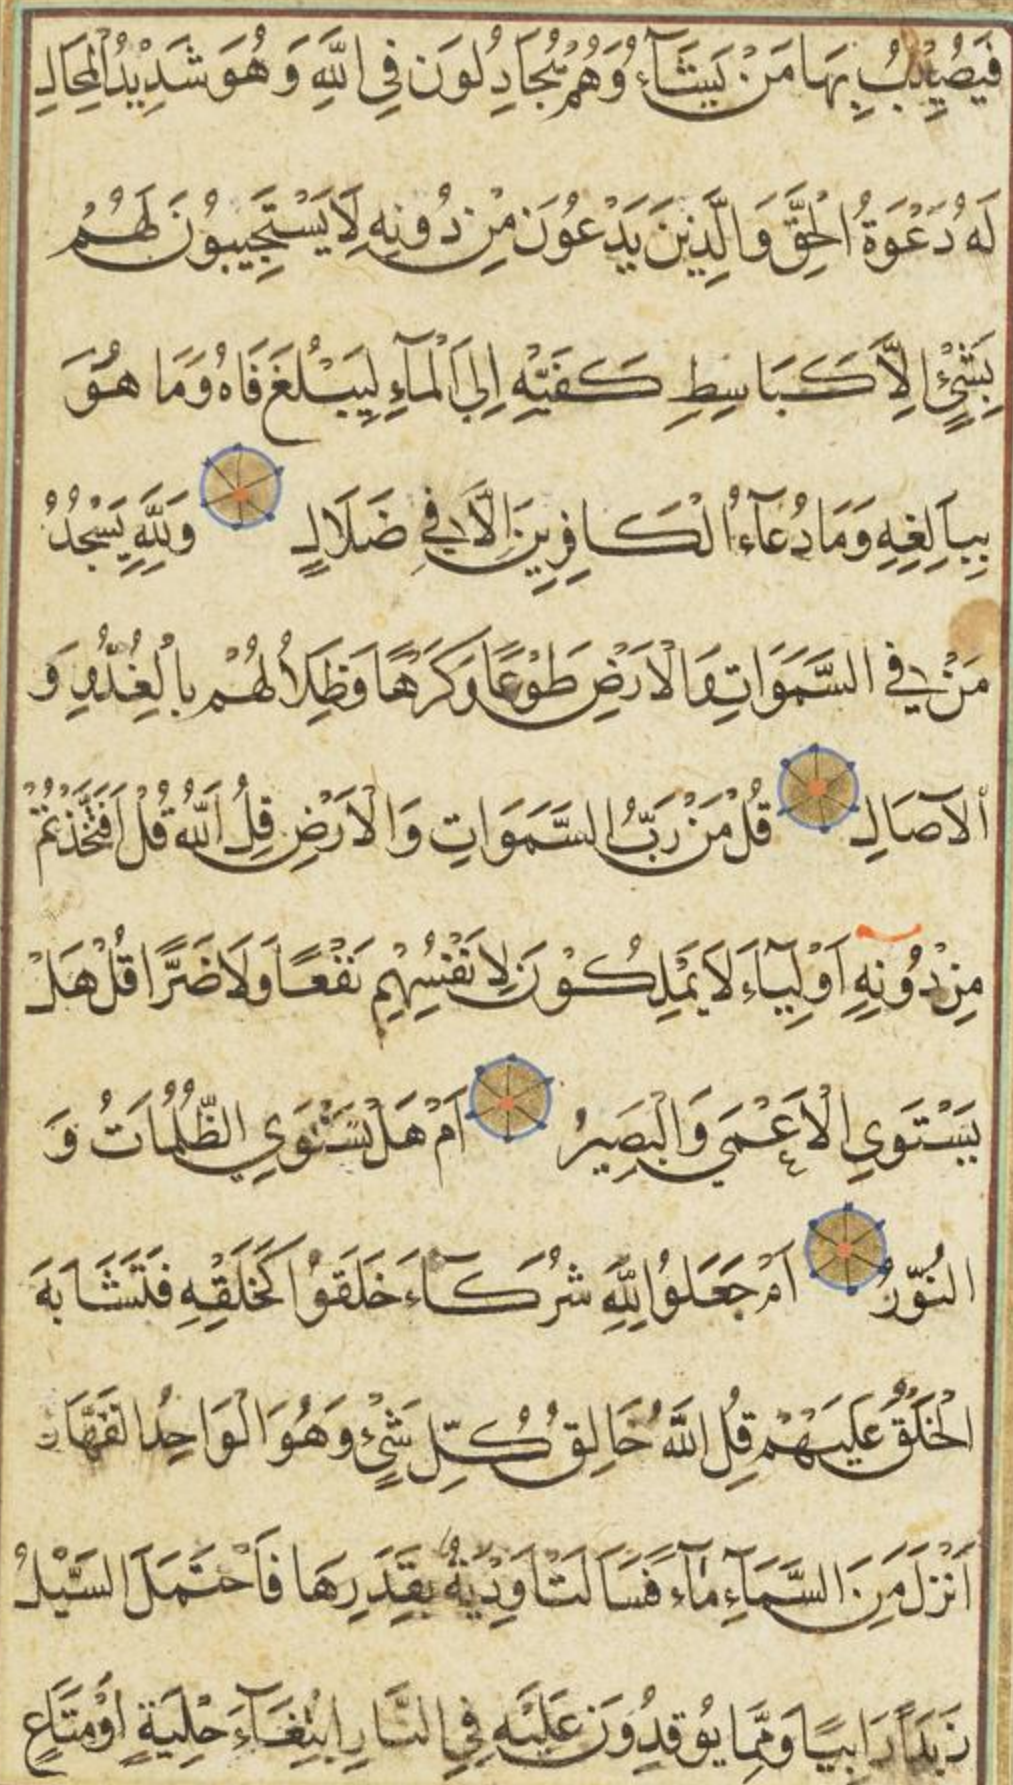 فَيُصِيبُ بِهَا مَنْ يَشَآءُ وَهُمْ يُجَادِلُونَ فِي اللَّهِ وَهُوَ شَدِيدُ الْمِحَالِ
لَهُ دَعْوَةُ الْحَقِّ وَالَّذِينَ يَدْعُونَ مِنْ دُونِهِ لَا يَسْتَجِيبُونَ لَهُمْ
بِشَيْءٍ اِلَّا كَبَاسِطِ كَفَّيْهِ اِلَي الْمَآءِ لِيَبْلُغَ فَاهُ وَمَا هُوَ
بِبَالِغِهِ وَمَا دُعَآءُ الْكَافِرِينَ اِلَّا فِي ضَلَالٍ وَلِلَّهِ يَسْجُدُ
مَنْ فِي السَّمَوَاتِ وَالْاَرْضِ طَوْعًا وَكَرْهًا وَظِلَالُهُمْ بِالْغُدُوِّ وَ
الْآصَالِ قُلْ مَنْ رَبُّ السَّمَوَاتِ وَالْاَرْضِ قُلِ اللَّهُ قُلْ اَفَتَّخَذْتُمْ
مِنْ دُونِهِ اَوْلِيَآءَ لَا يَمْلِكُونَ لِاَنْفُسِهِمْ نَفْعًا وَلَا ضَرًّا قُلْ هَلْ
يَسْتَوِي الْاَعْمَي وَالْبَصِيرُ اَمْ هَلْ تَسْتَوِي الظُّلُمَاتُ وَ
النُّورُ اَمْ جَعَلُوا لِلَّهِ شُرَكَآءَ خَلَقُوا كَخَلْقِهِ فَتَشَابَهَ
الْخَلْقُ عَلَيْهِمْ قُلِ اللَّهُ خَالِقُ كُلِّ شَيْءٍ وَهُوَ الْوَاحِدُ الْقَهَّارُ
اَنْزَلَ مِنَ السَّمَآءِ مَآءً فَسَالَتْ اَوْدِيَةٌ بِقَدَرِهَا فَاحْتَمَلَ السَّيْلُ
زَبَدًا رَابِيًا وَمِمَّا يُوقِدُونَ عَلَيْهِ فِي النَّارِ ابْتِغَآءَ حِلْيَةٍ اَوْ مَتَاعٍ